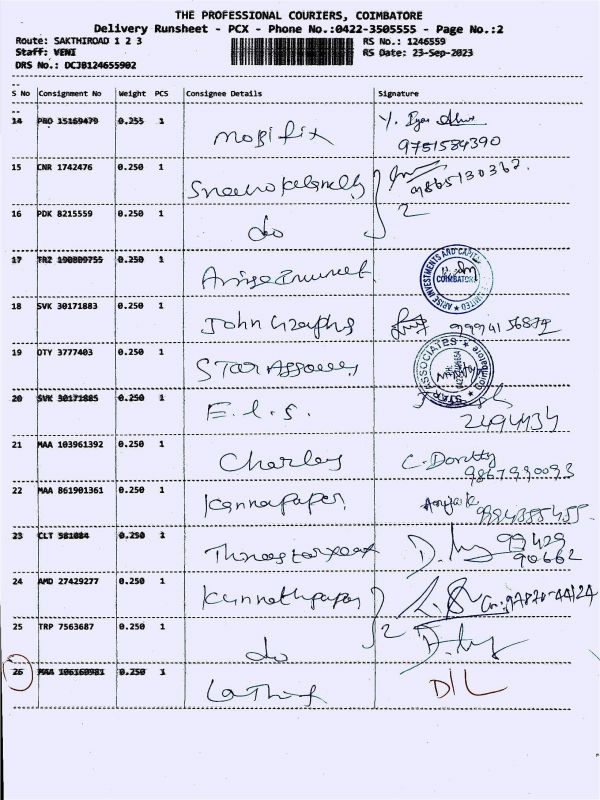 THE PROFESSIONAL COURIERS, COIMBATORE
Delivery Runsheet - PCX - Phone No.:0422-3505555 - Page No.:2
Route: SAKTHIROAD 1 2 3 RS No.: 1246559
Staff: VENI RS Date: 23-Sep-2023
DRS No.: DCJB124655902
S No Consignment No Weight PCS Consignee Details Signature
14 PBO 15169479 0.255 1 mobifix
9751584390
15 CNR 1742476 0.250 1
9865130362.
16 PDK 8215559 0.250 1 do 2
17 TRZ 190809755 0.250 1
ARISE INVESTMENTS AND CAPITAL LIMITED COIMBATORE
18 SVK 30171883 0.250 1 John
19 OTY 3777403 0.250 1 STar
STAR ASSOCIATES Coimbatore
20 SVK 30171885 0.250 1 E.l.s.
2494434
21 MAA 103961392 0.250 1 Charley C. Dorothy
22 MAA 861901361 0.250 1 Kannapaper
23 CLT 581084 0.250 1 99429
90662
24 AMD 27429277 0.250 1 97870-44124
25 TRP 7563687 0.250 1 do 2
26 MAA 106160981 0.250 1 D/L